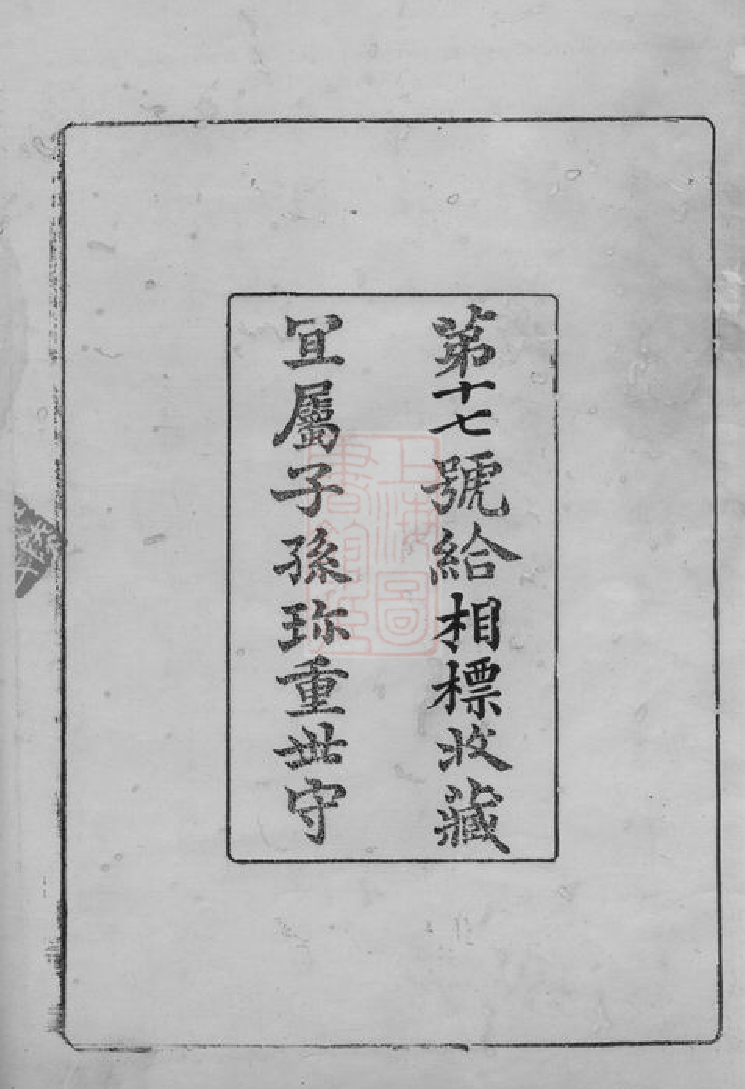 第十七號給相標收藏
宜屬子孫珎重世守
上海圖書館藏